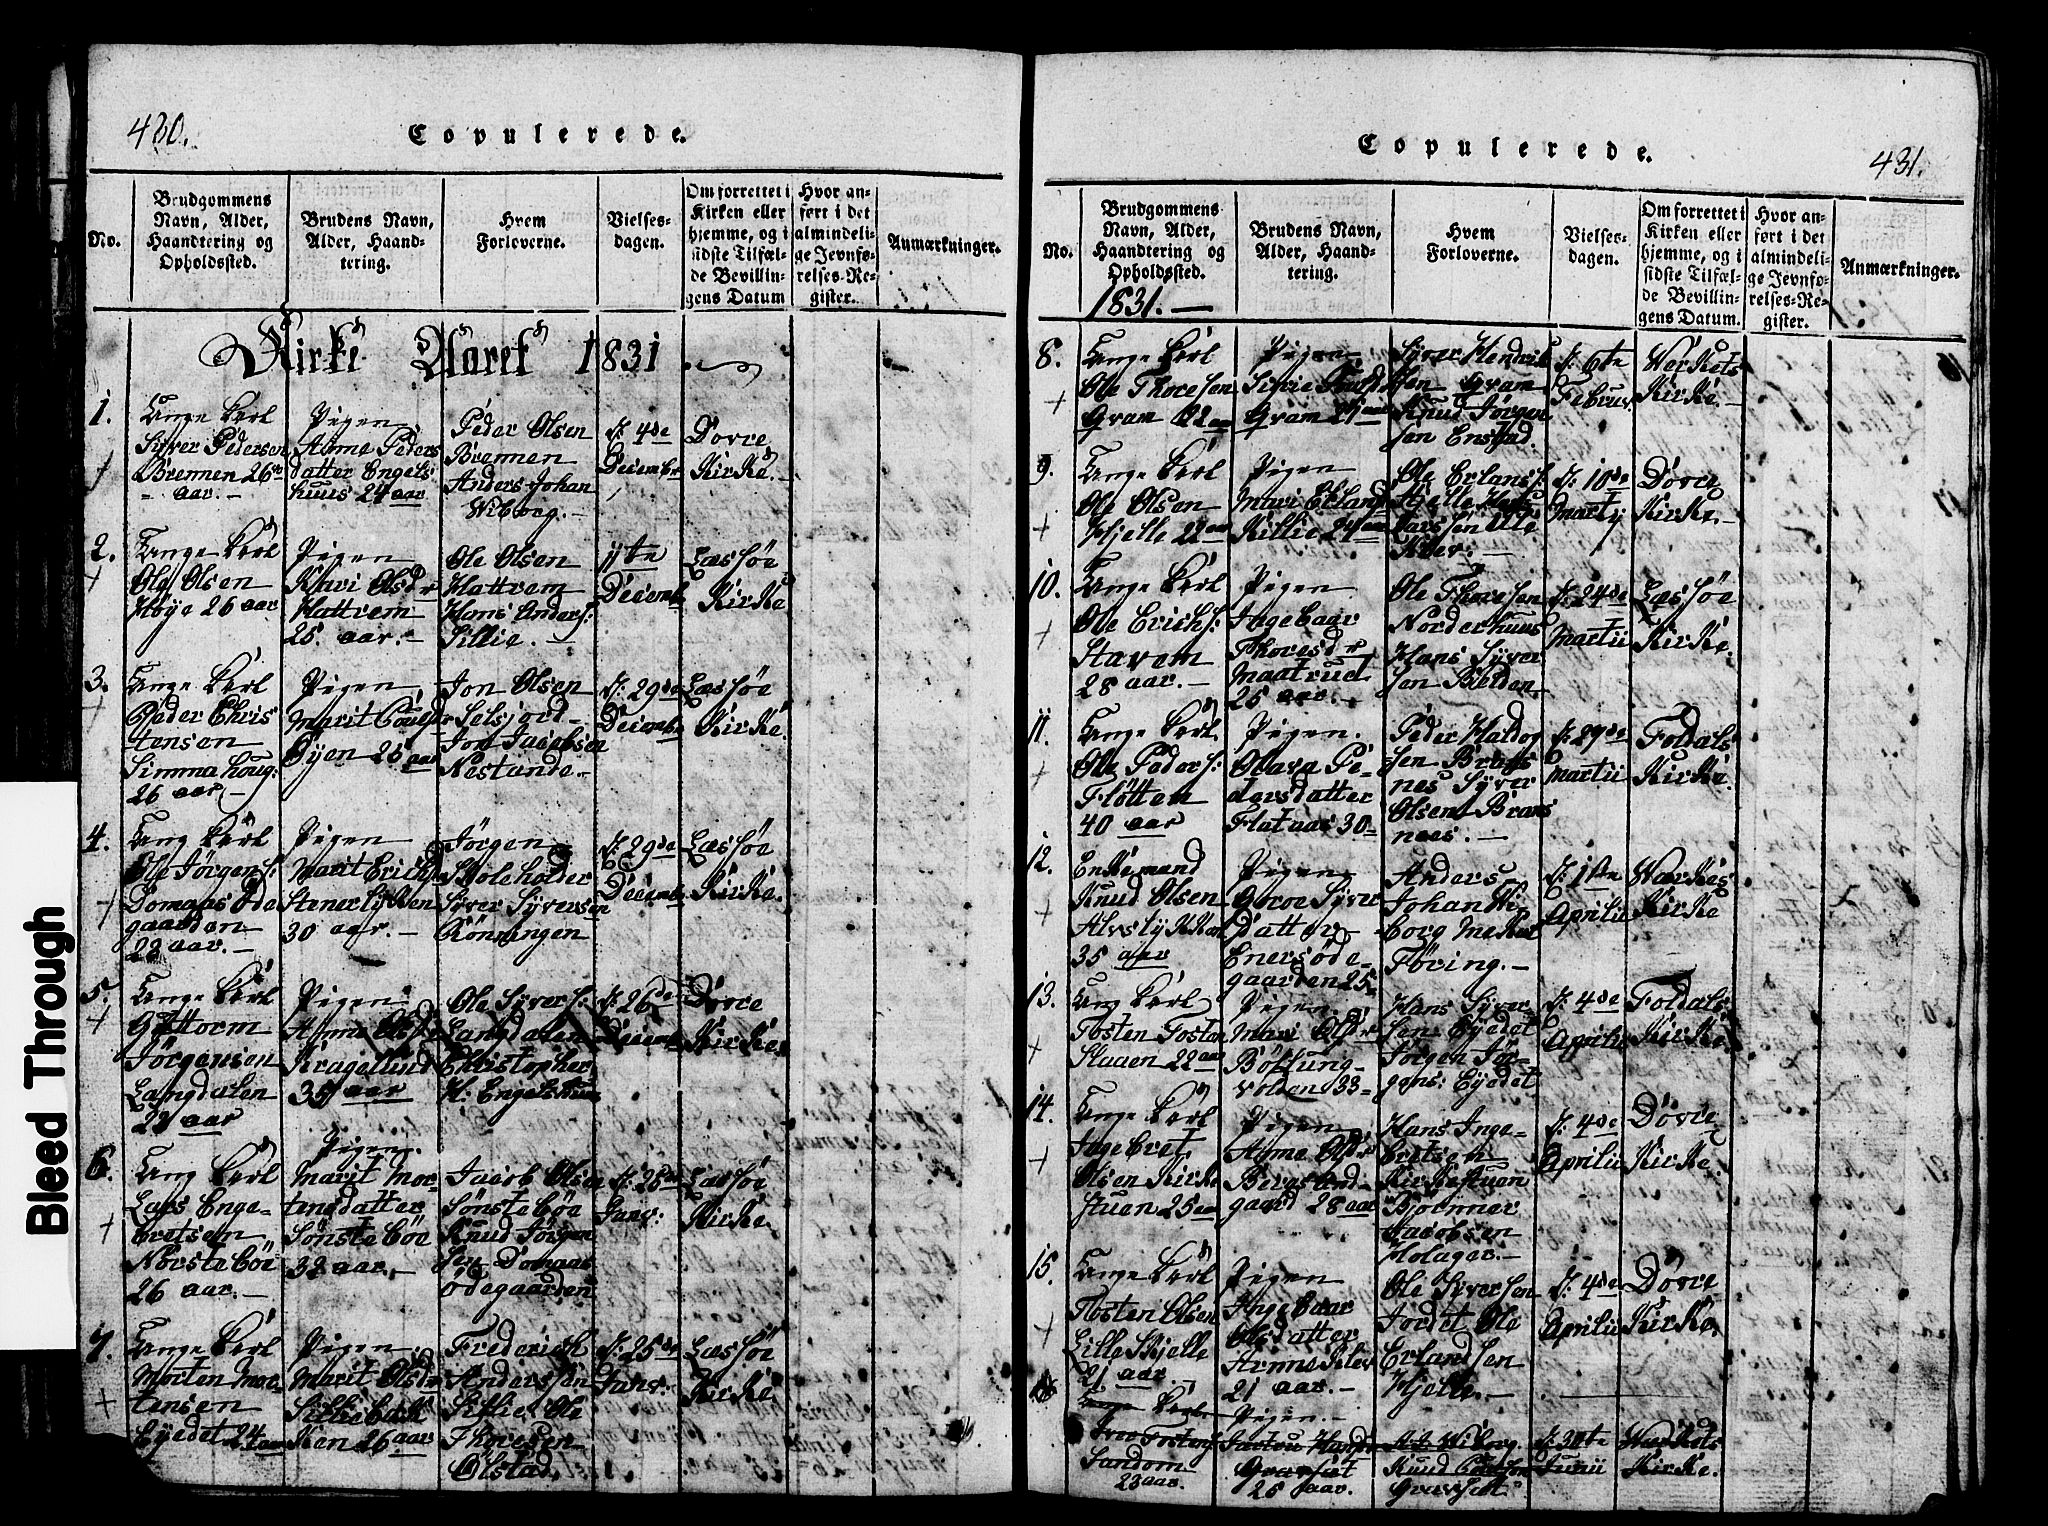 Bleed Through
480.
Copulerede.
No.
Brudgommens
Navn, Alder,
Haandtering og
Opholdssted.
Brudens Navn,
Alder, Haand-
tering.
Hvem
Forloverne.
Vielses-
dagen.
Om forrettet i
Kirken eller
hjemme, og i
sidste Tilfæl-
de Bevillin-
gens Datum
Hvor an-
ført i det
almindeli-
ge Jevnfø-
relses-Re-
gister.
Anmærkninger.
Kirke Aaret 1831
1.
Unge Karl
Syver Pedersen
Brennen 26
aar.-
Pigen
Anne Peders
datter Engels
huus 24 aar
Peder Olsen
Brennen
Anders Johan
Wiborg.-
D: 4de
Decembr
Dovre
Kirke.
2.
Unge Karl
Ole Olsen
Høye 26 aar
Pigen
Kari Olsdr
Hattrem
25. aar.-
Ole Olsen
Hattrem
Hans Anders:
Lillie.-
11te
Decemb
Læssøe
Kirke
3.
Unge Karl
Peder Chris
tensen
Simmahoug:
26 aar.-
Pigen
Marit
Øyen 25 aar
Jon Olsen
Selsjord-
Jon Jacobsen
Nestande.-
D: 29de
Decemb
Læssøe
Kirke.
4.
Ung Karl
Ole Jørgens:
Domaas Øde
gaarden
23 aar.-
Pigen
Marit Erichs
Stenerlykken
30 aar.-
Jørgen
Skoleholder
Syver Syversen
Rönningen
D: 29de
Decemb
Læssøe
Kirke.
5.
Unge Karl
Guttorm
Jörgensen
Langdalen
22 aar
Pigen
Anne Olsd
Kragelund
35 aar
Ole Syvers:
Langdalen
Christopher
H: Engelshuus
D: 26de
Decemb
Dovre
Kirke.
6.
Ung Karl
Lars Enge-
bretsen
Nörsteböe
26 aar.-
Pigen.
Marit Mor-
tensdatter
Sönsteböe
32 aar.-
Jacob Olsen
Sönsteböe
Knud Jörgen
sen Domaas
ödegaarden
D: 25de
Janv:
Læssøe
Kirke.
7.
Unge Karl
Morten Mor-
tensen
Eyedet 24 aar
Pigen.
Marit Olsdr
Lilliebak
ken 26 aar
Frederich
Anderssön
Lillie. Ole
Thoresen
Ølstad.
D: 25de
Janv:
Læssøe
Kirke
Copulerede.
431.
No.
Brudgommens
Navn, Alder,
Haandtering og
Opholdssted.
1831.-
Brudens Navn,
Alder, Haand-
tering.
Hvem
Forloverne.
Vielses-
dagen.
Om forrettet i
Kirken eller
hjemme, og i
sidste Tilfæl-
de Bevillin-
gens Datum.
Hvor an-
ført i det
almindeli-
ge Jevnfø-
relses-Re-
gister.
Anmærkninger.
8.
Unge Karl
Ole Thoresen
Gram 22 aar
Pigen
Sirie
Gram 21 aar
Syver Hendrik
sen Gram
Knud Jørgen
sen Enstad.
D: 6te
Februar
Werkets
Kirke.-
9.
Unge Karl
Ole Olsen
Hjelle 22 aar
Pigen
Mari Erland
Killie 24 aar
Ole Erlans:
Hjelle
Larssen Ulle
Aker.-
D: 10de
Martij
Dovre
Kirke.-
10.
Unge Karl
Ole Erichs:
Stavem
28 aar.-
Pigen
Ingebaar
Thoresdr
Maatrud
25 aar.-
Ole Thoresen
Norderhuus
Hans Syver
sen Belden.
D: 24de
Martii
Læssøe
Kirke.
11.
Unge Karl
Ole Peders:
Fløtten
40 aar
Pigen.
Olava Pe-
dersdatter
Flataas 30-
Peder Haldog
sen Brass
nes Syver
Olsen Bras
naas.-
D: 29de
Martii
Foldals
Kirke.
12.
Enkemand
Knud Olsen
Alvstykken
35 aar
Pigen
Goroe Syver
Datter
Enersøde-
gaarden 25
Anders
Johan Wi
borg
Føring.-
D: 1ste
Aprilii
Værkes
Kirke
13.
Ung Karl
Tosten Tosten
Slaaen 22 aar
Pigen
Mari Olsdr
Böstung-
volden 33-
Hans Syver-
sen Eyedet
Jörgen Jör-
gens: Eyedet
D: 4de
Aprilii
Foldals
Kirke.
14.
Unge Karl
Ingebret
Olsen Kirke
stuen 25 aar
Pigen
Anne Olsdr
Bergslund
gaard 28 aar
Hans Inge-
bretsen
Kirkestuen
Bjorner
Jacobsen
Holager.-
D: 4de
Aprilii
Dovre
Kirke.
15.
Unge Karl
Tosten Olsen
Lille Kjelle
21 aar.-
Pigen
Ingebaar
Olsdatter
Arnne
21 aar.-
Ole Syversen
Jordet Ole
Erlandsen
Hjelle.-
D: 4de
Aprilii
Dovre
Kirke.
Unge Karl
Iver Tostens
Sandom
23 aar.
Pigen.-
Hans
Gravset
25 aar.
A: J: Wiborg.
Knud
Gravset
D: 30te
Junii
Werkets
Kirke.